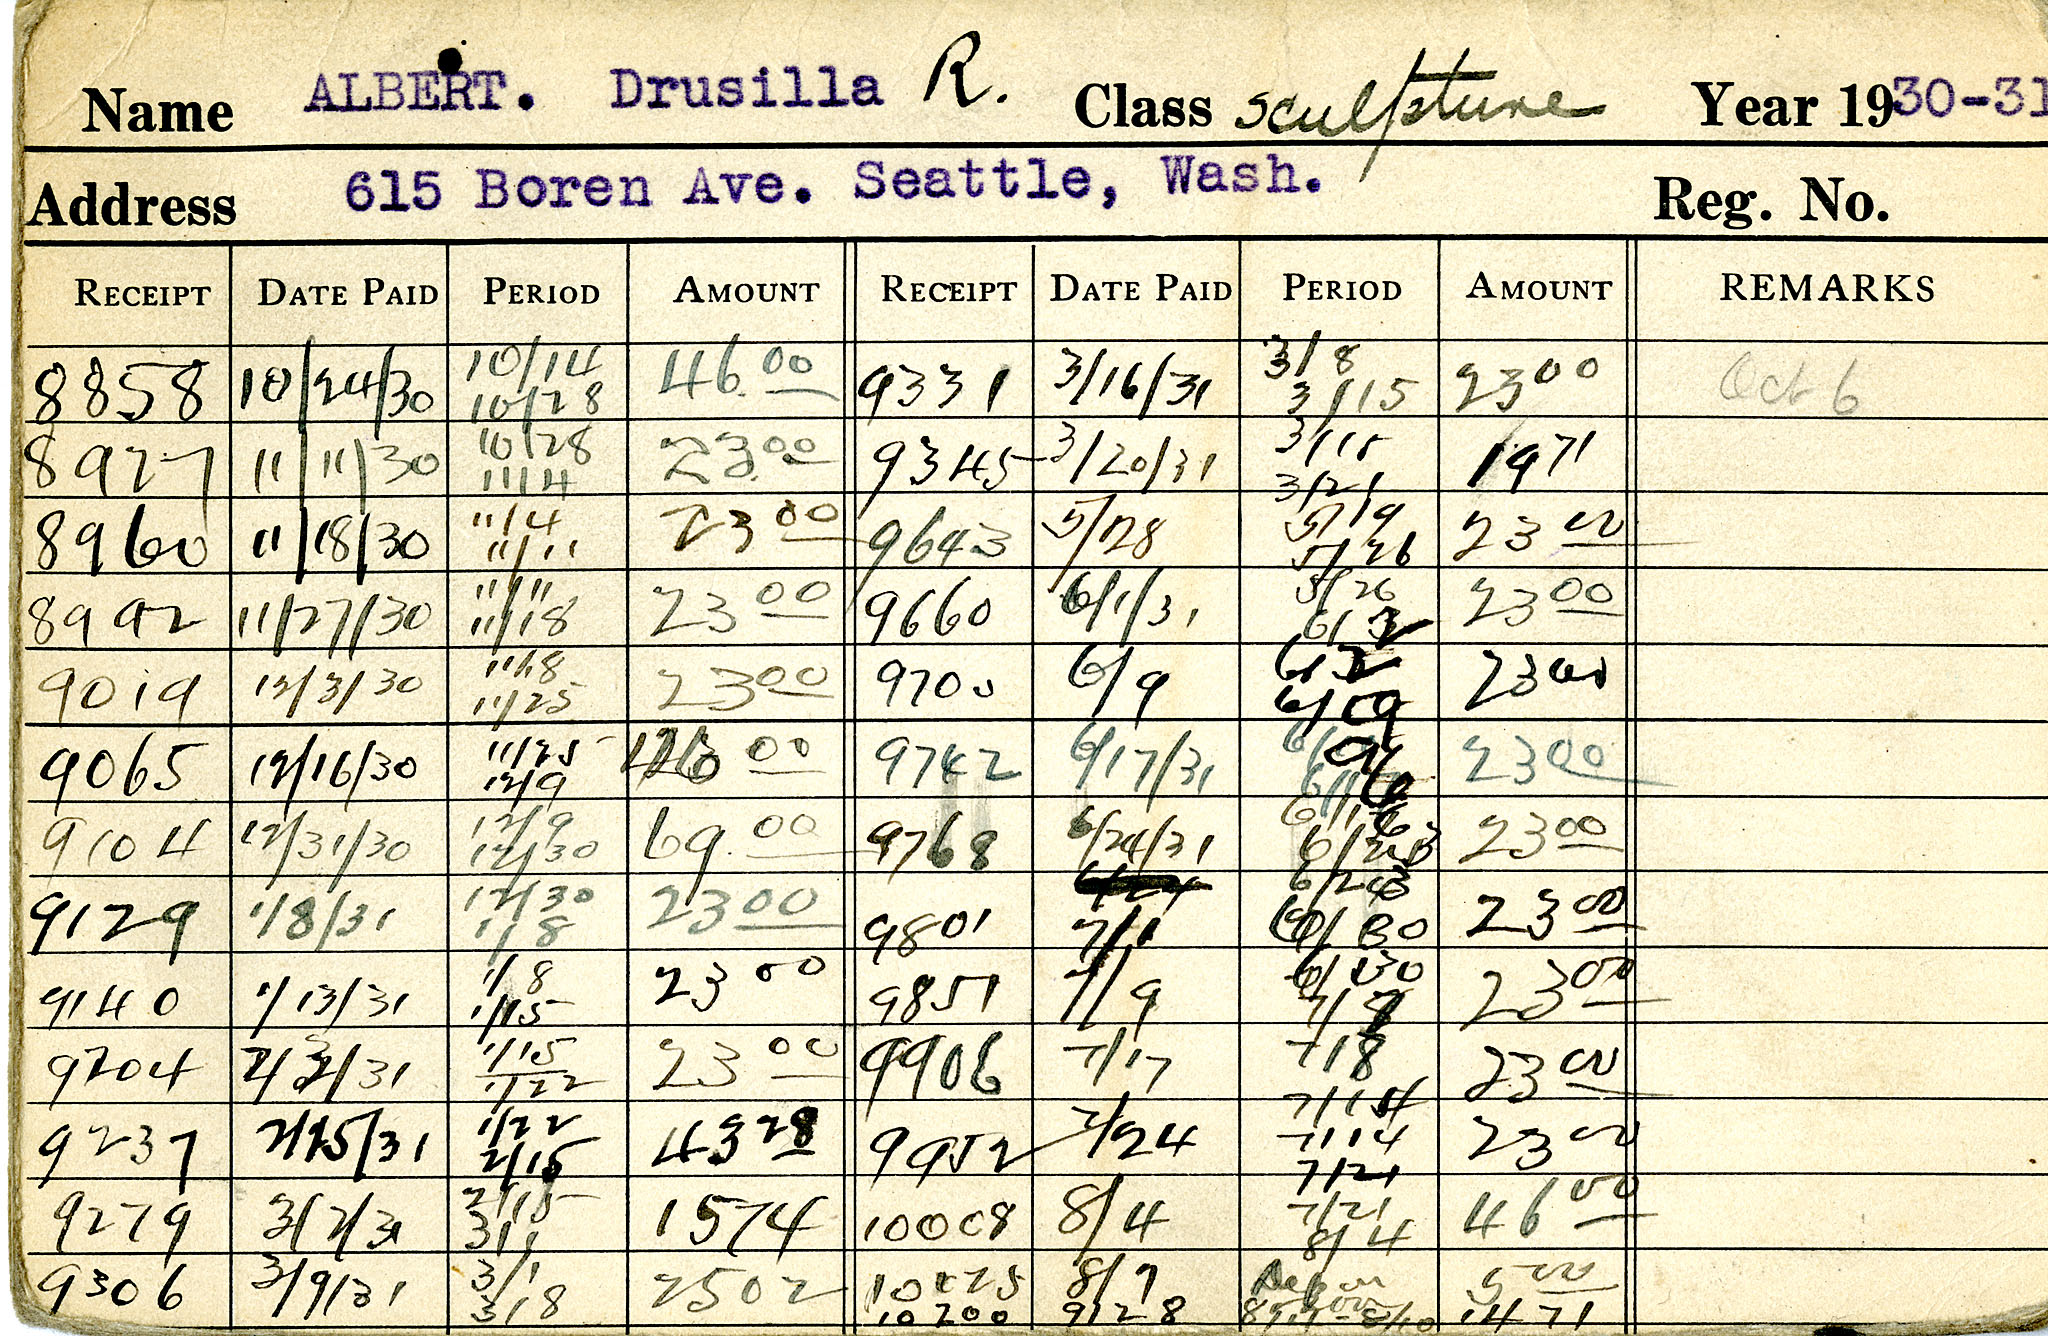 Name ALBERT. Drusilla R. Class Sculpture Year 1930-31
Address 615 Boren Ave. Seattle, Wash. Reg. No.
RECEIPT DATE PAID PERIOD AMOUNT RECEIPT DATE PAID PERIOD AMOUNT REMARKS
8858 10/24/30 10/14 10/28 46.00 9331 3/16/31 3/8 3/15 23 00 Oct 6
8927 11/11/30 10/28 11/4 23.00 9345 3/20/31 3/15 3/21 19 71
8960 11/18/30 11/4 11/11 23 00 9643 5/28 5/19 5/26 23 00
8992 11/27/30 11/11 11/18 23 00 9660 6/1/31 5/26 6/2 23 00
9019 12/3/30 11/18 11/25 23 00 9700 6/9 6/2 6/9 23 00
9065 12/16/30 11/25 12/9 46 00 9742 6/17/31 6/9 6/16 23 00
9104 12/31/30 12/9 12/30 69.00 9768 6/24/31 6/16 6/23 23 00
9129 1/8/31 12/30 1/8 23 00 9801 7/1 6/23 6/30 23 00
9140 1/13/31 1/8 1/15 23 00 9851 7/9 6/30 7/7 23 00
9204 2/2/31 1/15 1/22 23 00 9906 7/17 7/8 7/14 23 00
9237 2/15/31 1/22 2/15 43 28 9952 7/24 7/14 7/21 23 00
9279 3/2/31 2/15 3/1 15 74 10008 8/4 7/21 8/4 46 00
9306 3/9/31 3/1 3/8 25 02 10025 8/7 5 00
10200 9/28 14 71